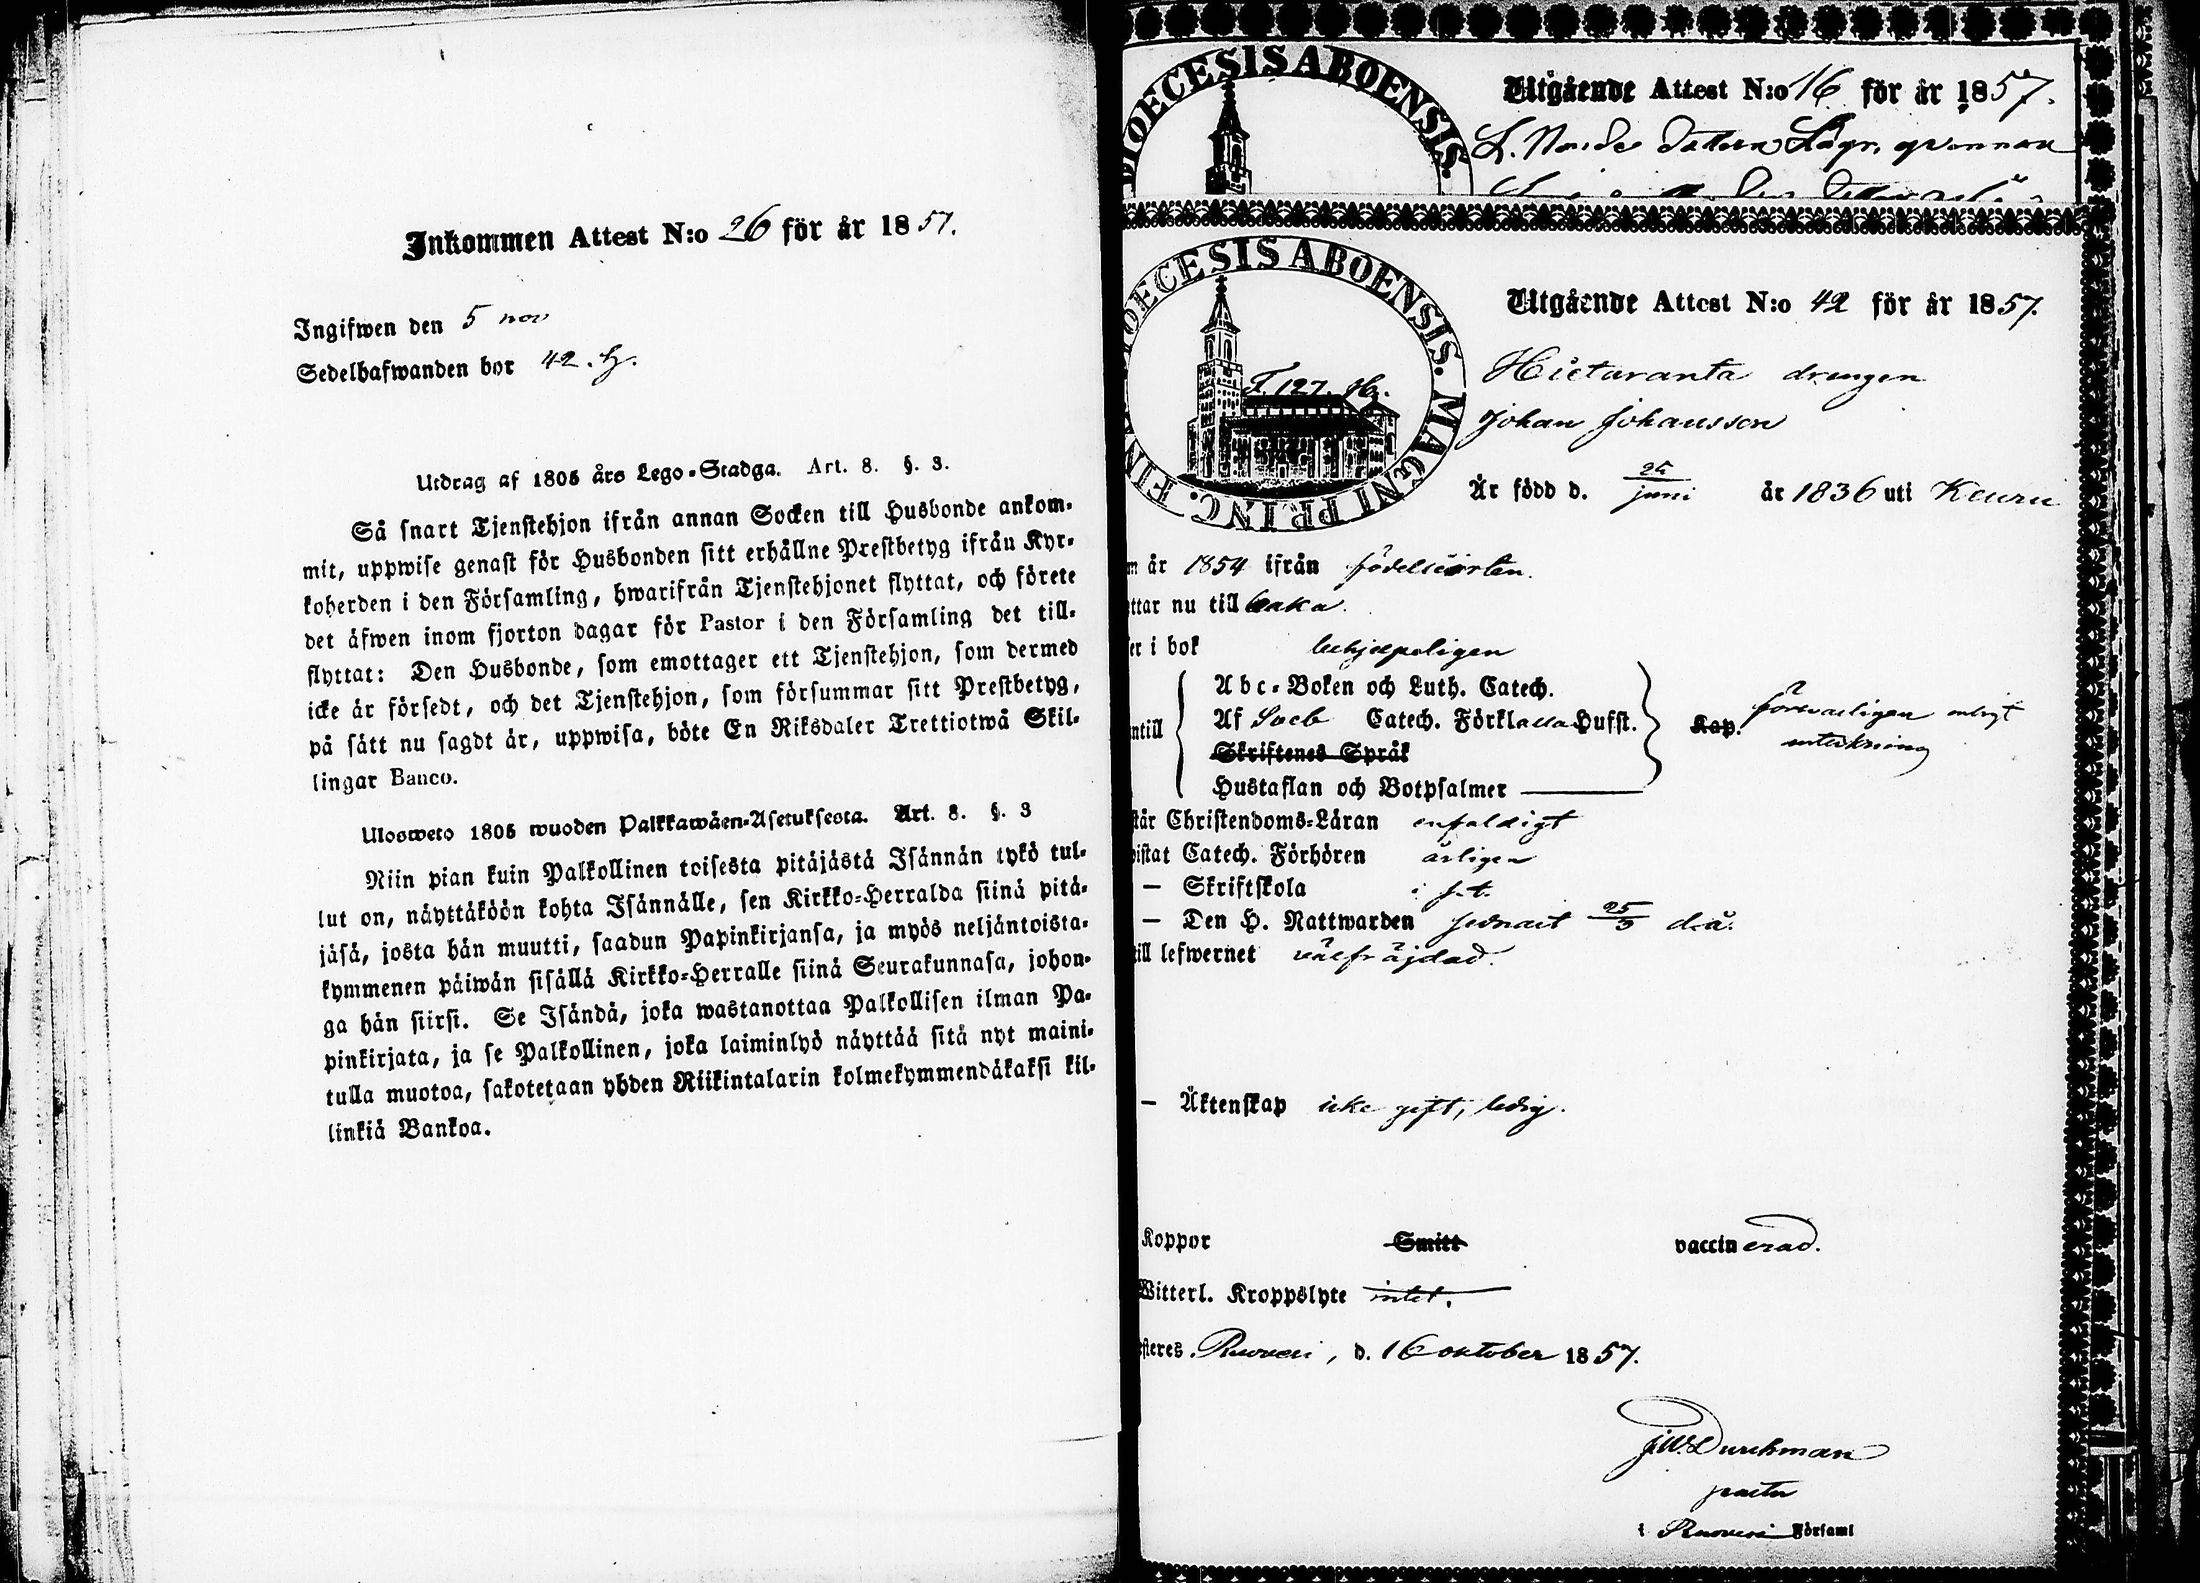 Inkommen Attest N:o 26 för år 1857.
Ingifwen den 5 nov
Sedelhafwanden bor 42. H.
Utdrag af 1805 års Lego-Stadga. Art. 8. §. 3.
Så snart Tjenstehjon ifrån annan Socken till Husbonde ankom-
mit, uppwise genast för Husbonden sitt erhållne Prestbetyg ifrån Kyr-
koherden i den Församling, hwarifrån Tjenstehjonet flyttat, och förete
det äfwen inom fjorton dagar för Pastor i den Församling det till-
flyttat: Den Husbonde, som emottager ett Tjenstehjon, som dermed
icke är försedt, och det Tjenstehjon, som försummar sitt Prestbetyg,
på sätt nu sagdt är, uppwisa, böte En Riksdaler Trettiotwå Skil-
lingar Banco.
Ulosweto 1805 wuoden Palkkawäen-Asetuksesta. Art. 8. §. 3
Niin pian kuin Palkollinen toisesta pitäjästä Isännän tykö tul-
lut on, näyttäköön kohta Isännälle, sen Kirkko-Herralda siinä pitä-
jäsä, josta hän muutti, saadun Papinkirjansa, ja myös neljäntoista-
kymmenen päiwän sisällä Kirkko-Herralle siinä Seurakunnasa, johon-
ga hän siirsi. Se Isändä, joka wastanottaa Palkollisen ilman Pa-
pinkirjata, ja se Palkollinen, joka laiminlyö näyttää sitä nyt maini-
tulla muotoa, sakotetaan yhden Riikintalarin kolmekymmendäkaksi kil-
linkiä Bankoa.
DIOECESIS ABOENSIS.
Utgående Attest N:o 16 för år 1857.
DIOECESIS ABOENSIS. MAGNI PRINC. FIN
F. 127. H.
Utgående Attest N:o 42 för år 1857.
Hietaranta drengen
Johan Johansson
Är född d. 25 juni år 1836 uti Keuru
m år 1854 ifrån födelseorten.
ttar nu till baka.
er i bok behjelpeligen
Abc-Boken och Luth. Catech.
ntill Af Sveb Catech. Förkl alla Hufst. Kap. försvarligen enligt
anteckning
Skriftenes Språk
Hustaflan och Botpsalmer
står Christendoms-Läran enfaldigt
vistat Catech. Förhören årligen
— Skriftskola i f. t.
— Den H. Nattwarden sednast 25/3 d. å.
till lefwernet välfräjdad.
— Äktenskap icke gift, ledig.
Koppor Smitt vaccinerad.
Witterl. Kroppslyte intet.
steres Ruovesi, d. 16 oktober 1857.
J.W. Durchman
pastor
i Ruovesi Församl